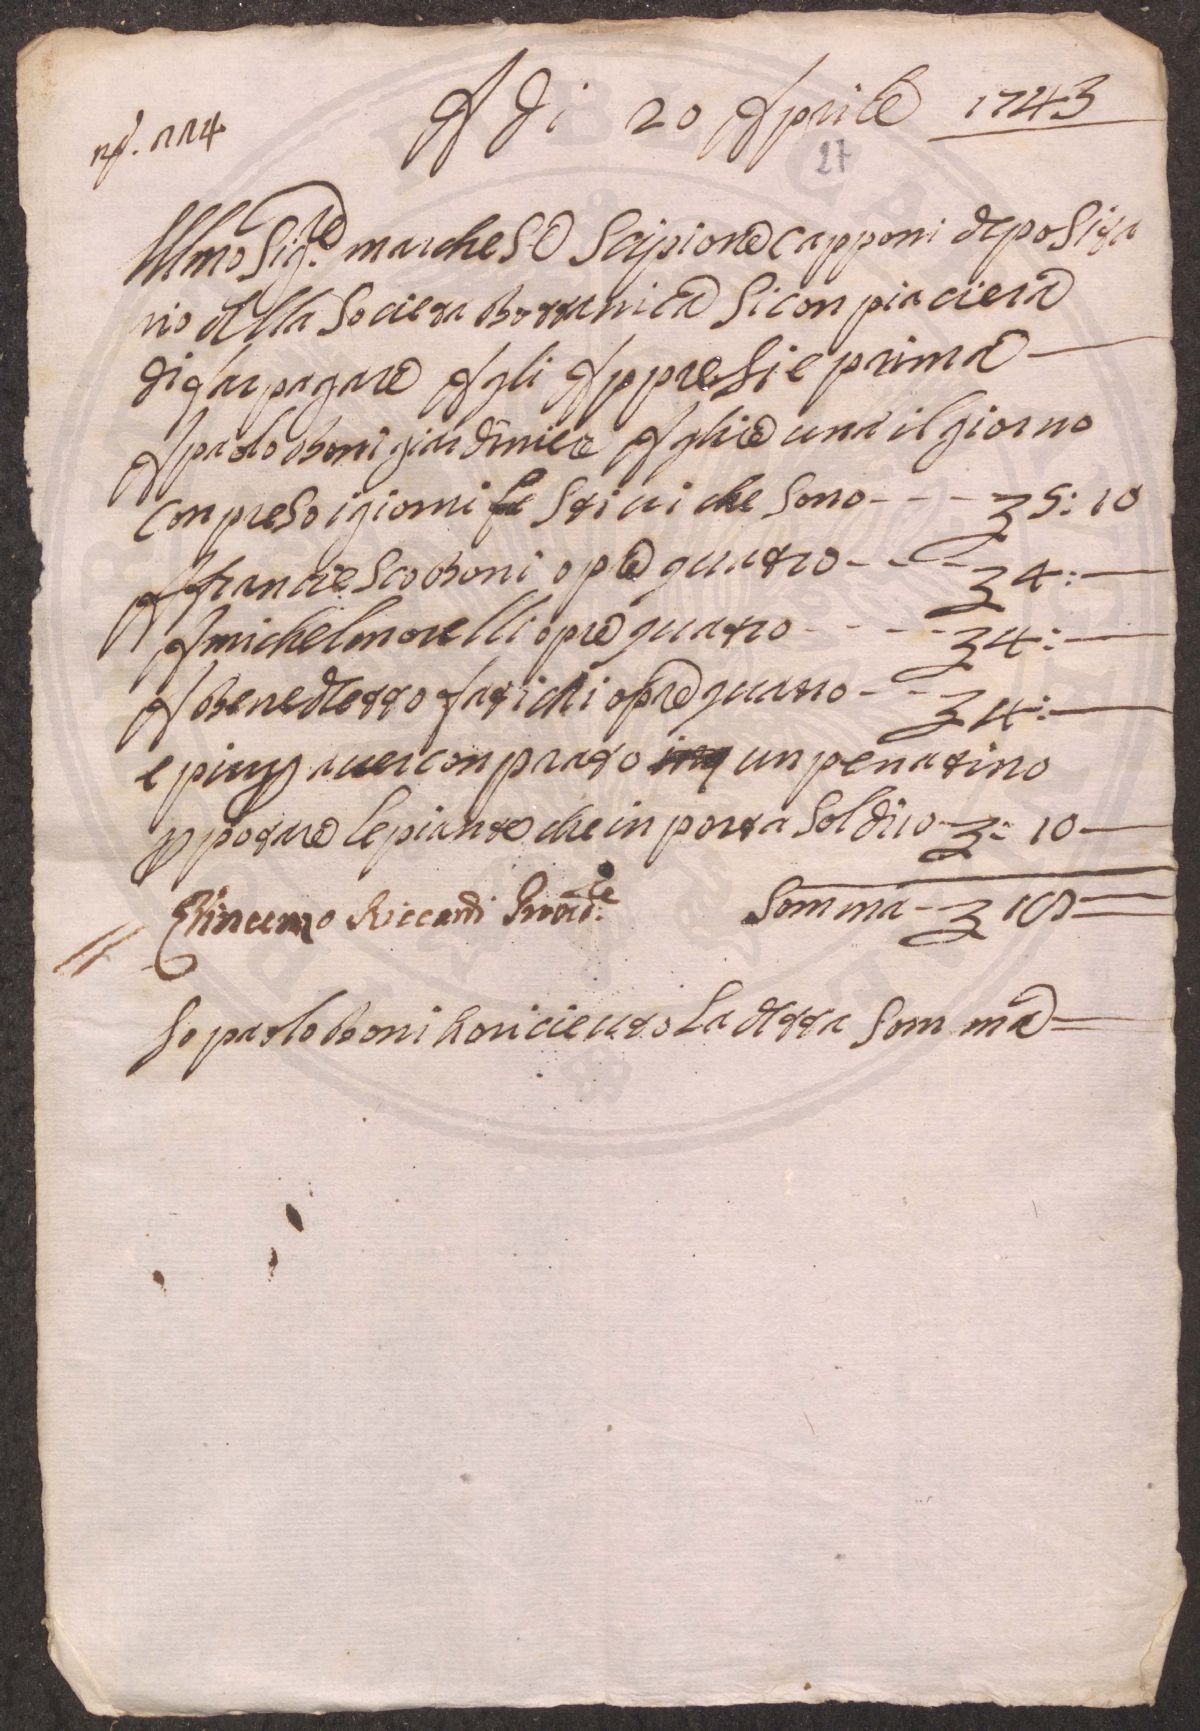 A Di 20 Aprile 1743
n.º 114
27
Illmo Sig.re marchese Scipione Capponi deposita
rio della Societa Bottanica Si conpiaciera
di far pagare Agli Appresi e prima
A paolo Boni giardiniere A lire una il giorno
conpreso i giorni festivi che sono - - - £ 5: 10
A Franciesco Boni opre quatro - - - £ 4: —
A michel morelli opre quatro - - - - £ 4: —
A Benedetto fatichi opre quatro - - £ 4: —
e piu p aver conprato un penatino
p potare le piante che in porta Soldi 10 - £ : 10 —
Vincenzo Riccardi Provd.re Somma - £ 18 =
Io paolo Boni ho riceuto La detta Somma =